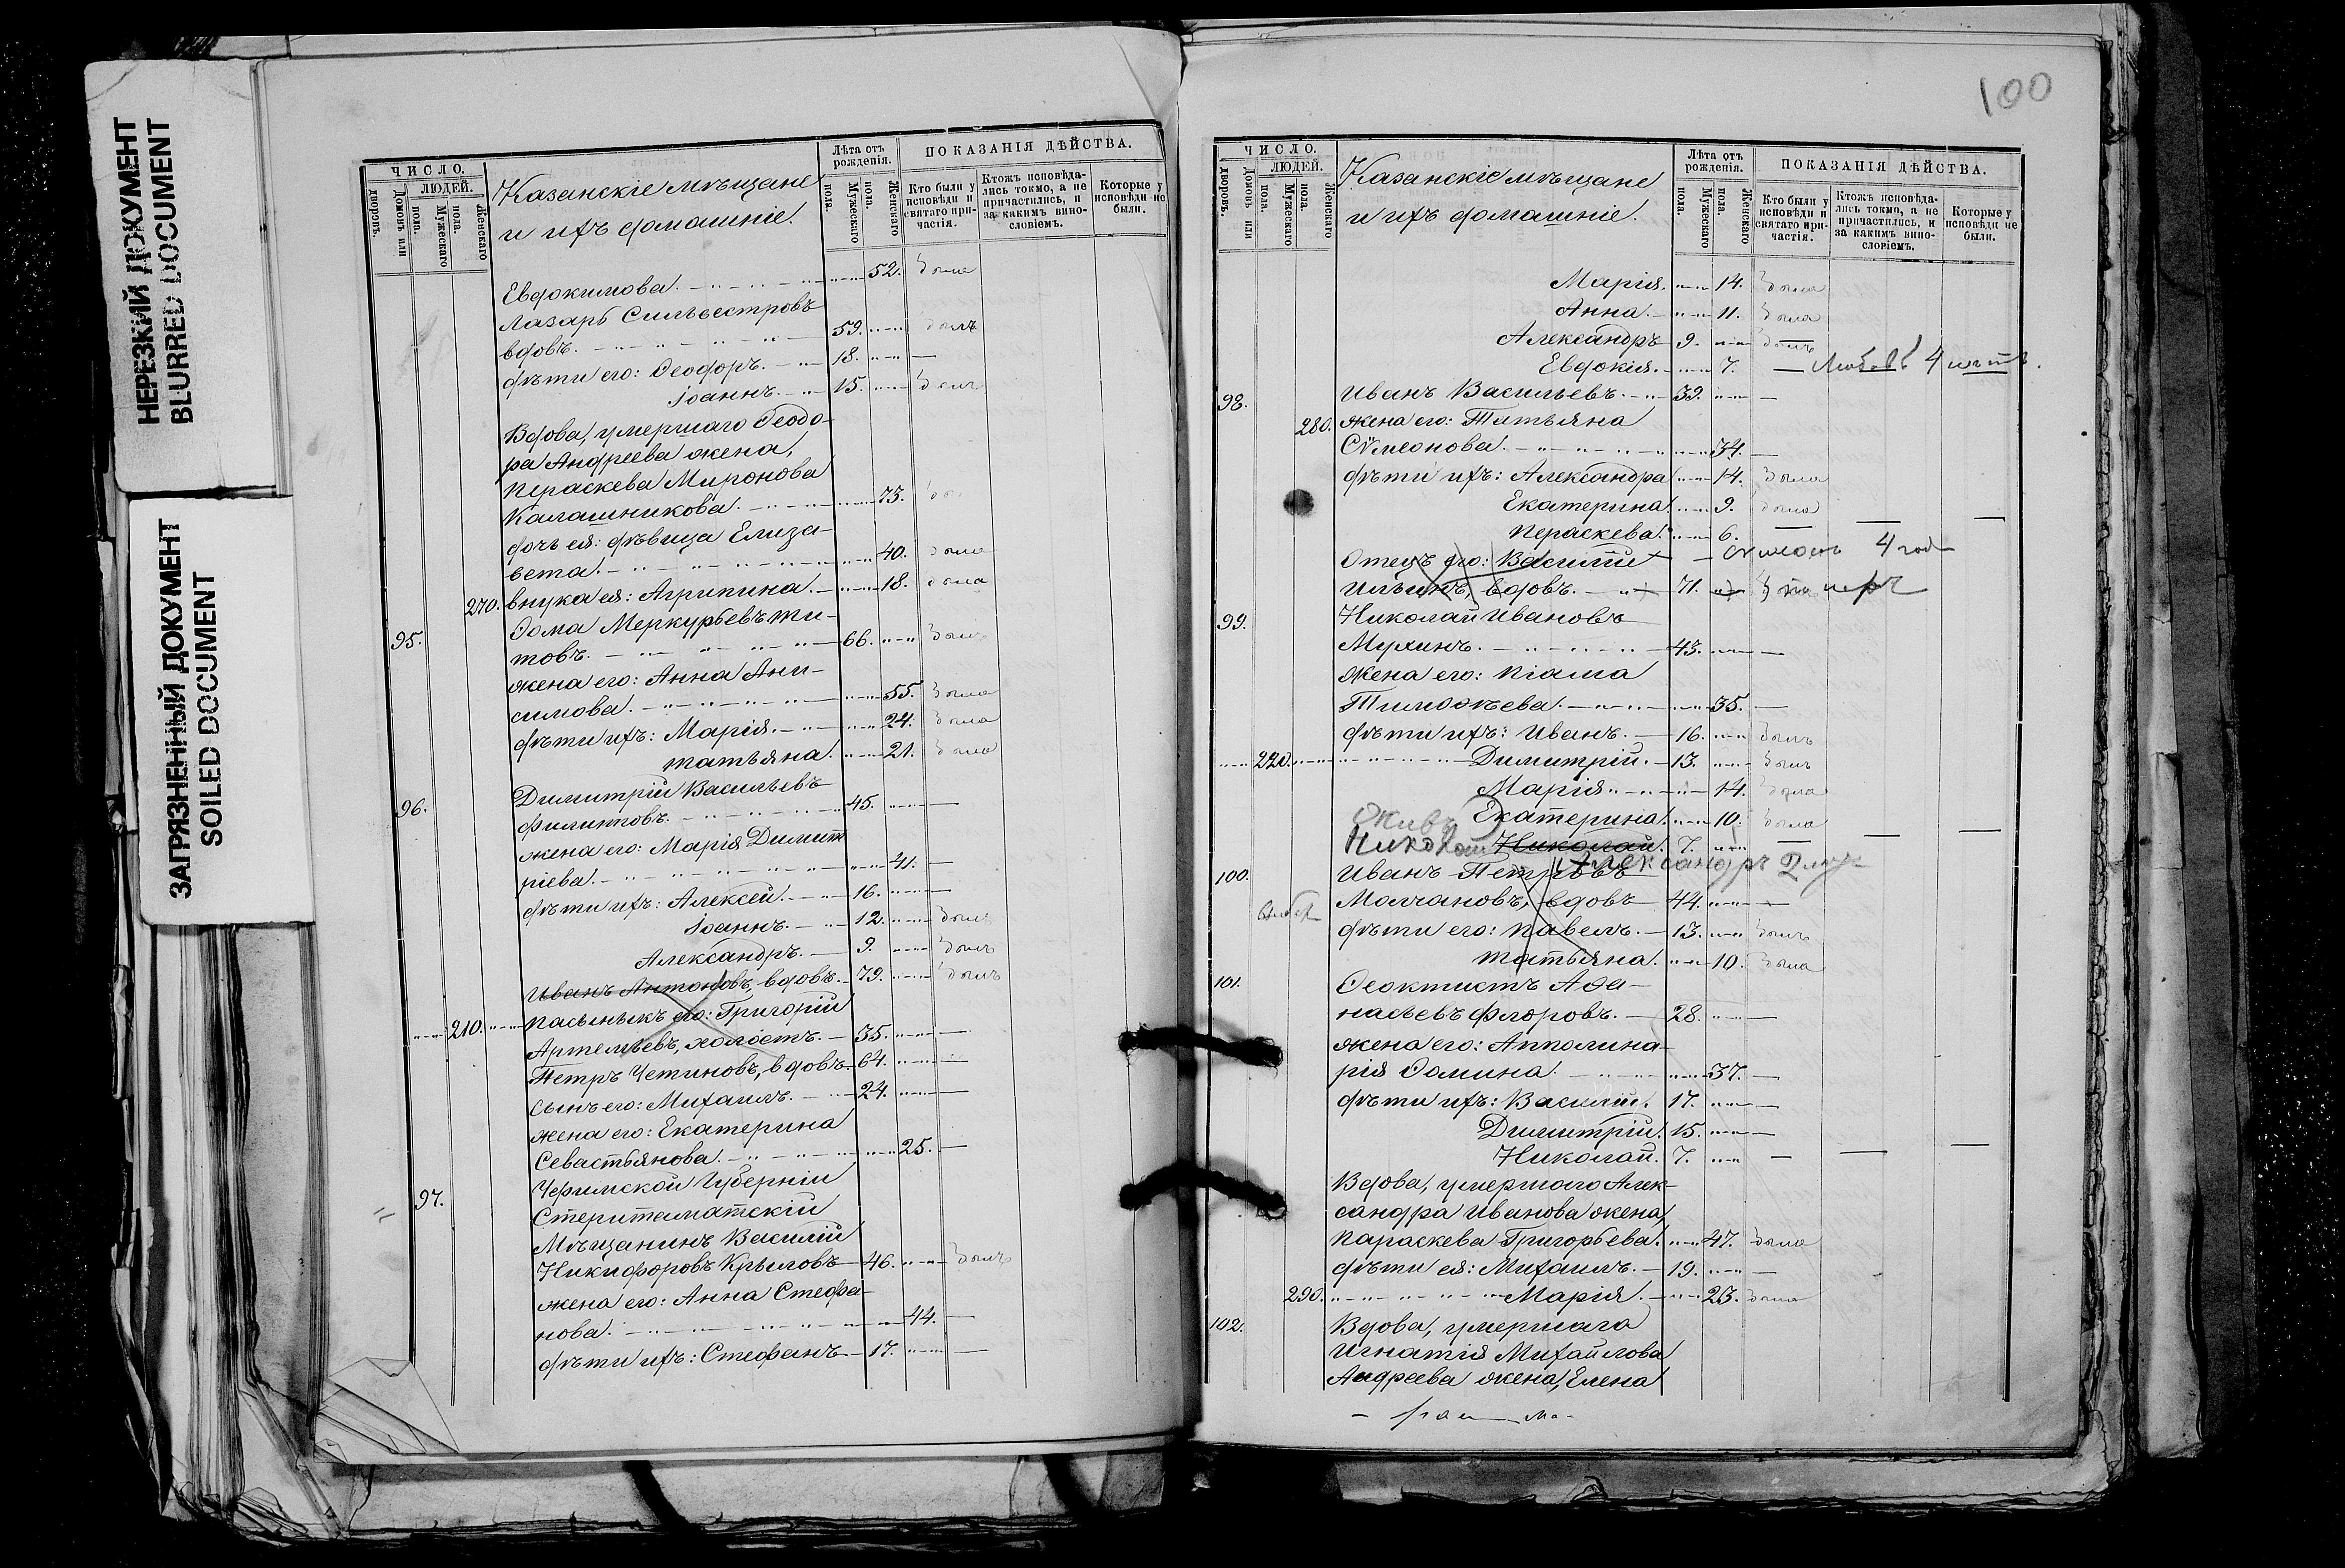 НЕРЕЗКИЙ ДОКУМЕНТ
BLURRED DOCUMENT
ЗАГРЯЗНЕННЫЙ ДОКУМЕНТ
SOILED DOCUMENT
ЧИСЛО.
ЛЮДЕЙ.
Домовъ или дворовъ.
Мужескаго пола.
Женскаго пола.
Казанскіе мѣщане
и ихъ домашніе.
Лѣта отъ рожденія.
Мужескаго пола.
Женскаго пола.
ПОКАЗАНІЯ ДѢЙСТВА.
Кто были у исповѣди и святаго причастія.
Ктожъ исповѣдались токмо, а не причастились, и за какимъ винословіемъ.
Которые у исповѣди не были.
Евдокимова. 52. была
Лазарь Сильвестровъ
вдовъ. 59. былъ
дѣти его: Ѳеодоръ. 18. —
Іоаннъ. 15. былъ
Вдова, умершаго Ѳеодо-
ра Андреева жена,
Пераскева Миронова
Калашникова. 73.
дочь ея: дѣвица Елиза-
вета. 40. была
270. внука ея: Агрипина. 18. была
95. Ѳома Меркурьевъ Ти-
товъ. 66. былъ
жена его: Анна Ани-
симова. 55. была
дѣти ихъ: Марія. 24. была
Татьяна. 21. была
96. Димитрій Васильевъ
Филипповъ. 45. —
жена его: Марія Димит
ріева. 41. —
дѣти ихъ: Алексей. 16. —
Іоаннъ. 12. былъ
Александръ. 9. былъ
Иванъ Антоновъ, вдовъ. 79. былъ
210. Пасынькъ его: Григорій
Артемьевъ, холостъ. 35. —
Петръ Устиновъ, вдовъ 64. —
Сынъ его: Михаилъ. 24. —
жена его: Екатерина
Севастьянова. 25. —
97. Уфимской Губерніи
Стерлитаматскій
Мѣщанинъ Василій
Никифоровъ Крыловъ 46. былъ
жена его: Анна Стефа-
нова. 44. —
дѣти ихъ: Стефанъ 17. —
100
ЧИСЛО.
ЛЮДЕЙ.
Домовъ или дворовъ.
Мужескаго пола.
Женскаго пола.
Казанскіе мѣщане
и ихъ домашніе.
Лѣта отъ рожденія.
Мужескаго пола.
Женскаго пола.
ПОКАЗАНІЯ ДѢЙСТВА.
Кто были у исповѣди и святаго причастія.
Ктожъ исповѣдались токмо, а не причастились, и за какимъ винословіемъ.
Которые у исповѣди не были.
Марія. 14. была
Анна. 11. была
Александръ 9. былъ
Евдокія. 7. — Любовь 4 лѣтъ.
98. Иванъ Васильевъ. 39. —
280. жена его: Татьяна
Сѵмеонова. 34. —
дѣти ихъ: Александра 14. была
Екатерина. 9. была
Пераскева. 6. — — —
Отецъ его: Василій Сѵмеонъ 4 год
Ильинъ, вдовъ. 71.
99. Николай Ивановъ
Мухинъ. 43. —
жена его: Піама
Тимоѳеева. 35. —
дѣти ихъ: Иванъ. 16. былъ
220. Димитрій. 13. былъ
Марія 14. была
Екатерина. 10. была
живъ Николай Николай. 7. — — —
Александръ 2
100. Иванъ Петровъ
Молчановъ, вдовъ 44. —
дѣти его: Павелъ. 13. былъ
Татьяна. 10. была
101. Ѳеоктистъ Аѳа-
насьевъ Флоровъ. 28. —
жена его: Апполина-
рія Ѳомина. 37. —
дѣти ихъ: Василій. 17. —
Димитрій. 15. —
Николай. 7. — — —
Вдова, умершаго Алек-
сандра Иванова жена,
Параскева Григорьева. 47. была
дѣти ея: Михаилъ. 19. —
290. Марія. 23. была
102. Вдова, умершаго
Игнатія Михайлова
Андреева жена, Елена